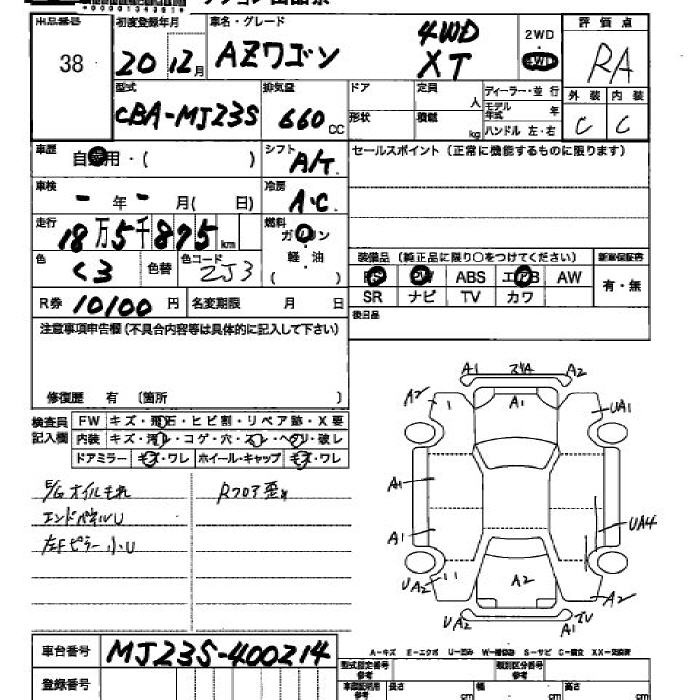 出品番号 初度登録年月 車名・グレード 2WD 評価点
38 20 12月 AZワゴン 4WD XT 4WD RA
型式 排気量 ドア 定員 人 ディーラー・並行 外装 内装
CBA-MJ23S 660cc 形状 積載 kg モデル年式 年 C C
ハンドル 左・右
車歴 自家用・( ) シフト A/T セールスポイント(正常に機能するものに限ります)
車検 - 年 - 月( 日) 冷房 A・C
走行 18万5千875km 燃料 ガソリン
色 くろ 色替 色コード ZJ3 軽・油 ( )
装備品(純正品に限り○をつけてください) 新車保証書
PS PW ABS エアB AW 有・無
SR ナビ TV カワ
R券 10100円 名変期限 月 日 後日品
注意事項申告欄(不具合内容等は具体的に記入して下さい)
修復歴 有 〔箇所 〕
検査員記入欄 FW キズ・飛石・ヒビ割・リペア跡・X要
内装 キズ・汚レ・コゲ・穴・スレ・ヘタリ・破レ
ドアミラー キズ・ワレ ホイール・キャップ キズ・ワレ
E/Gオイルもれ Rフロア歪み
エンドパネルU
左Fピラー小U
A1 A2
A2 A1 UA1
A1
A1 UA4
UA2 A2 A2
UA2 A1
車台番号 MJ23S-400214
登録番号
A-キズ E-エクボ U-凹み W-補修跡 S-サビ C-腐食 XX-交換済
型式指定番号 参考 類別区分番号 参考
車庫証明用 参考 長さ cm 幅 cm 高さ cm